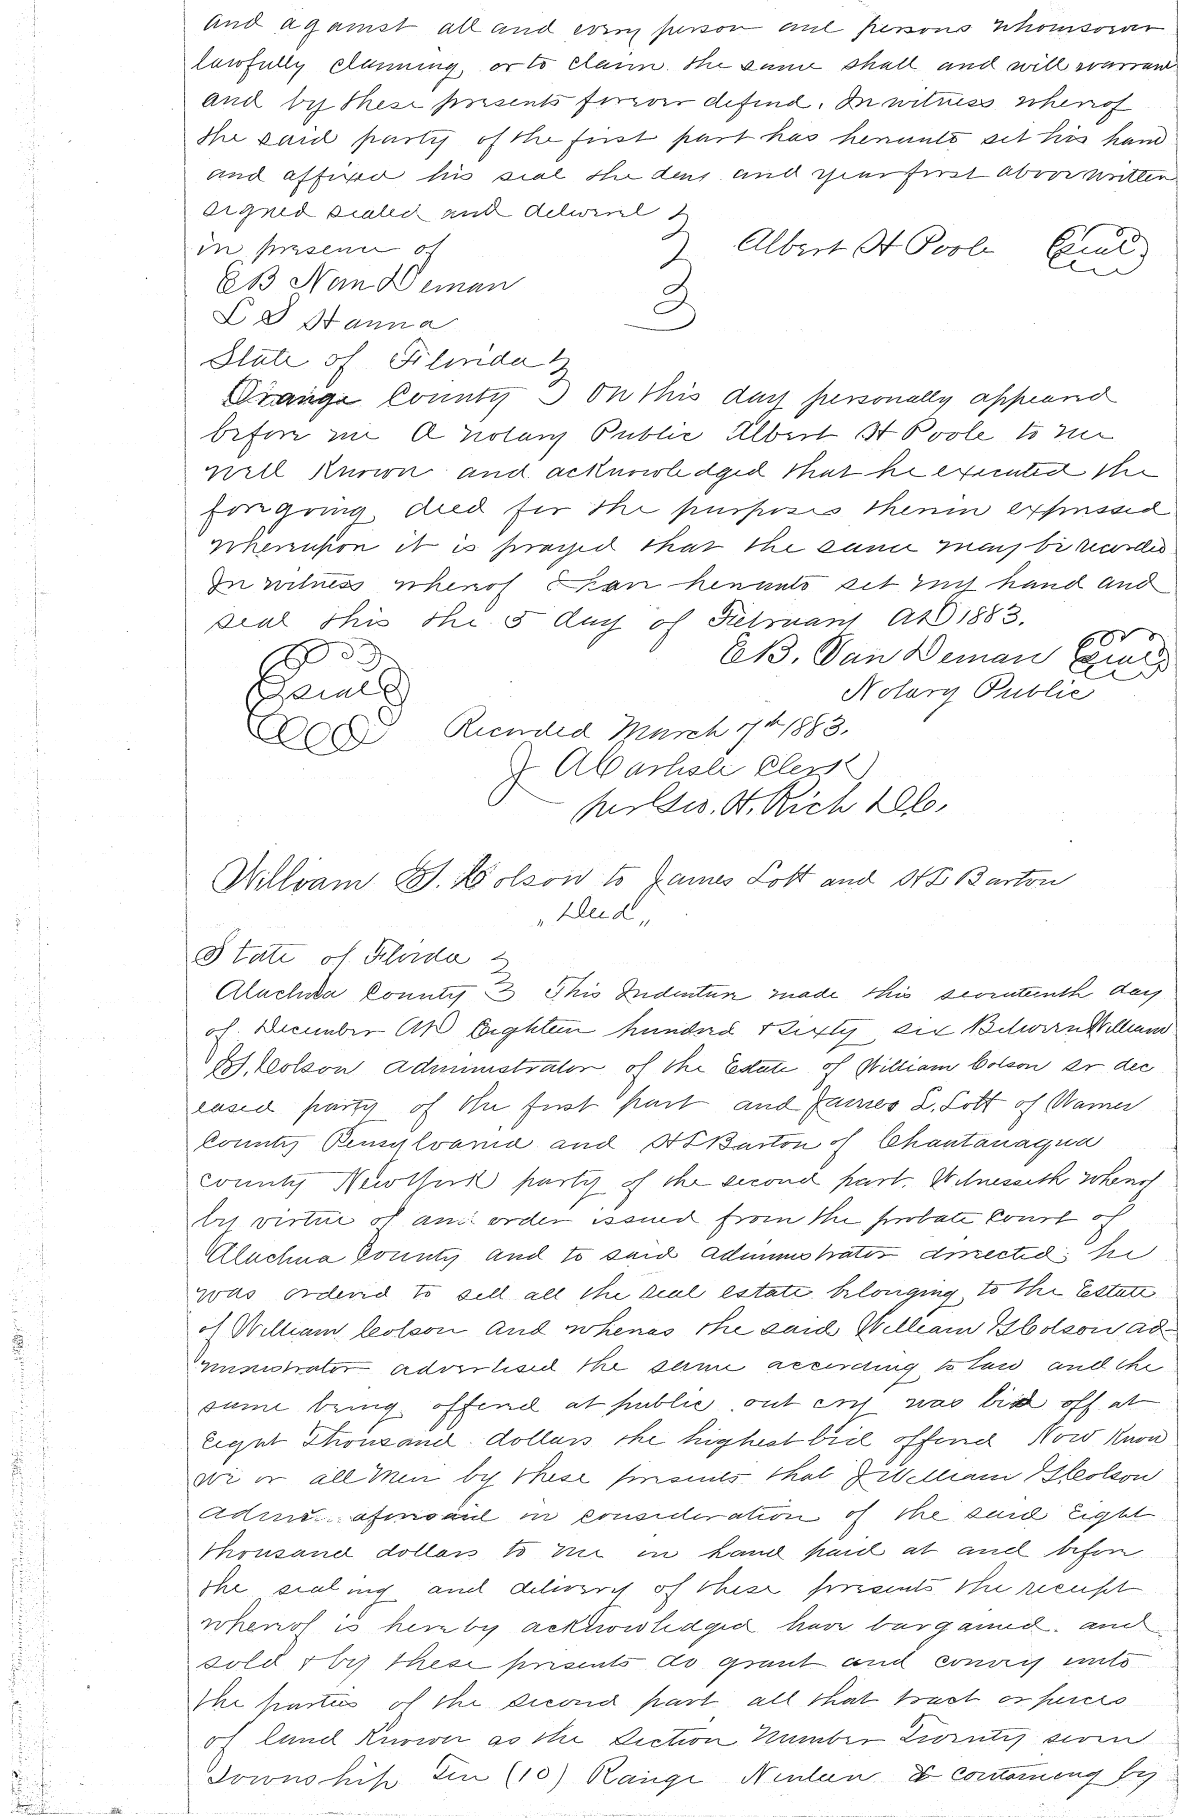 and against all and every person and persons whomsoever
lawfully claiming, or to claim the same shall and will warrant
and by these presents forever defend. In witness whereof
the said party of the first part has hereunto set his hand
and affixed his seal the day and year first above written
signed sealed and delivered
in presence of Albert H Poole Seal
E B Van Deman
L S Hanna
State of Florida
Orange County On this day personally appeared
before me A notary Public Albert H Poole to me
well known and acknowledged that he executed the
foregoing deed for the purposes therein expressed
whereupon it is prayed that the same may be recorded
In witness whereof I have hereunto set my hand and
seal this the 5 day of February AD 1883.
E B. Van Deman Seal
Seal Notary Public
Recorded March 7th 1883.
J A Carlisle Clerk
per Geo. H. Rich D.C.
William H. Colson to James Lott and H L Barton
"Deed"
State of Florida
Alachua County This Indenture made this seventeenth day
of December AD Eighteen hundred & sixty six Between William
H. Colson administrator of the Estate of William Colson sr dec
eased party of the first part and James L. Lott of Warren
County Pensylvania and H L Barton of Chautanaqua
county New York party of the second part. Witnesseth whereof
by virtue of an order issued from the probate Court of
Alachua County and to said administrator directed, he
was ordered to sell all the real estate belonging to the Estate
of William Colson and whereas the said William H Colson ad-
ministrator advertised the same according to law and the
same being offered at public out cry was bid off at
Eight Thousand dollars the highest bid offered Now Know
we or all Men by these presents that I William H Colson
Admr. aforesaid in consideration of the said Eight
thousand dollars to me in hand paid at and before
the sealing and delivery of these presents the receipt
whereof is hereby acknowledged have bargained and
sold & by these presents do grant and convey unto
the parties of the second part all that tract or peices
of land known as the Section Number Twenty seven
Township Ten (10) Range Ninteen & containing by